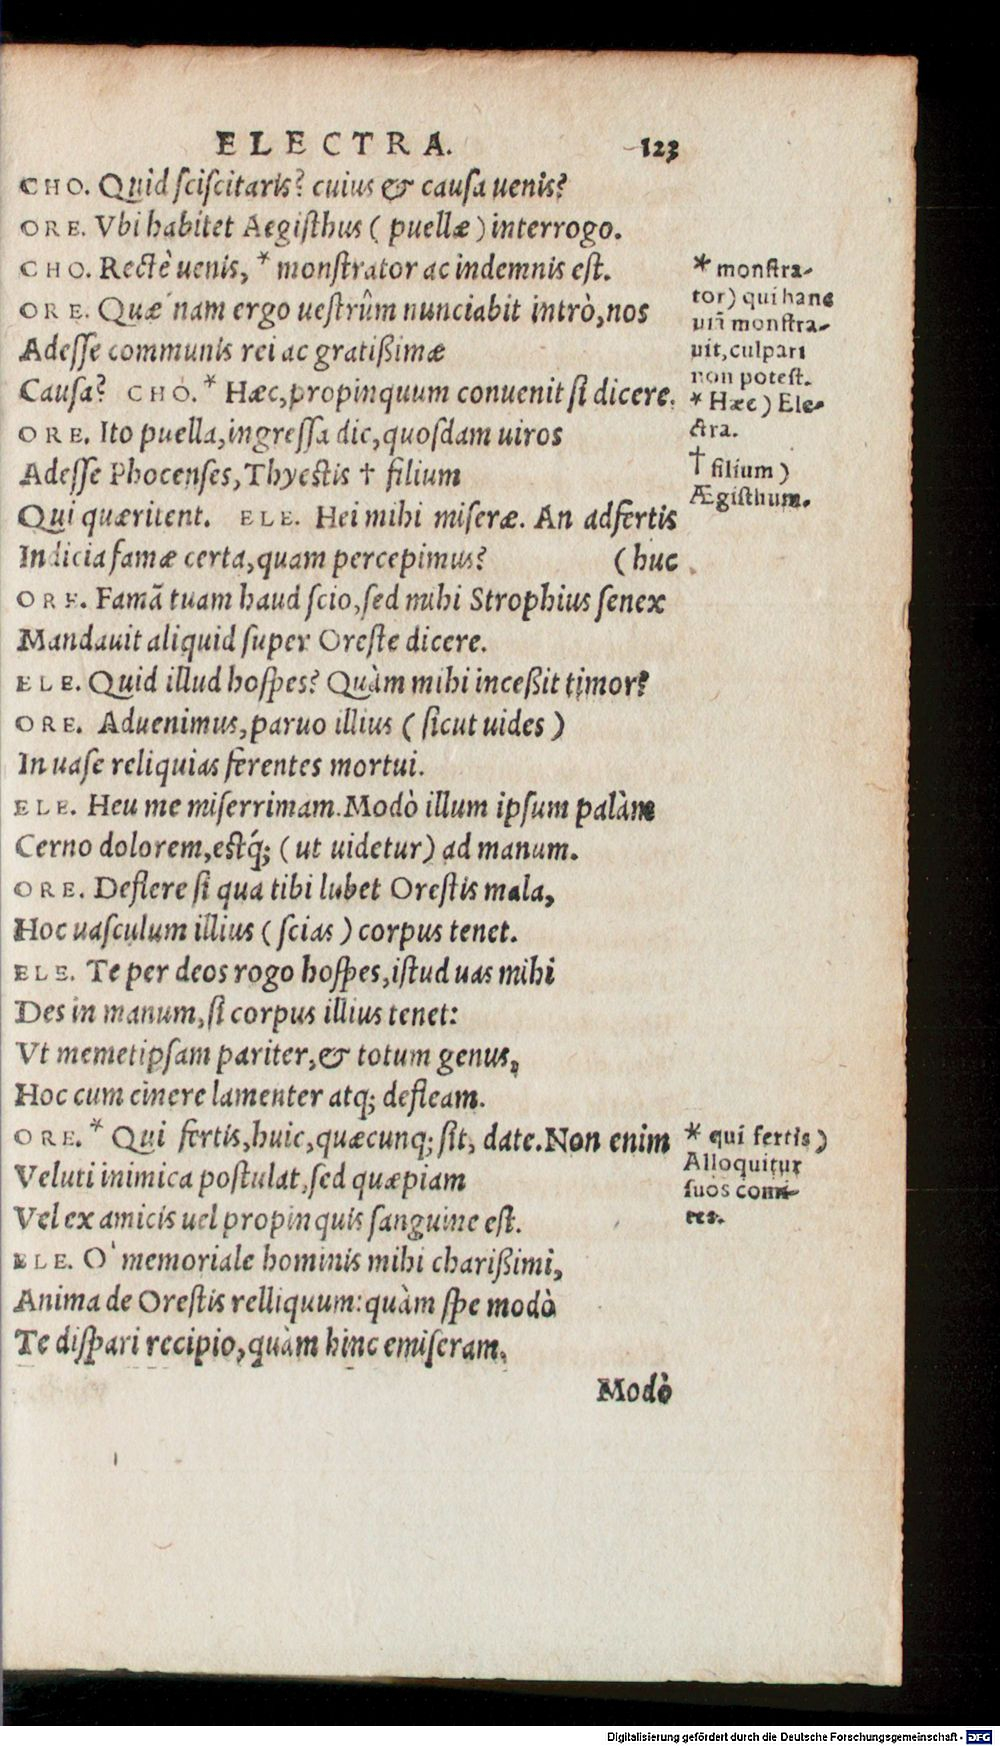 ELECTRA. 123
CHO. Quid sciscitaris? cuius & causa uenis?
ORE. Vbi habitet Aegisthus (puellæ) interrogo.
CHO. Rectè uenis, * monstrator ac indemnis est.
ORE. Quæ nam ergo uestrûm nunciabit intrò, nos
Adesse communis rei ac gratißimæ
Causa? CHO. * Hæc, propinquum conuenit si dicere.
ORE. Ito puella, ingressa dic, quosdam uiros
Adesse Phocenses, Thyestis † filium
Qui quæritent. ELE. Hei mihi miseræ. An adfertis
Indicia famæ certa, quam percepimus? (huc
ORE. Famã tuam haud scio, sed mihi Strophius senex
Mandauit aliquid super Oreste dicere.
ELE. Quid illud hospes? Quàm mihi inceßit timor?
ORE. Aduenimus, paruo illius (sicut uides)
In uase reliquias ferentes mortui.
ELE. Heu me miserrimam. Modò illum ipsum palàm
Cerno dolorem, estq́; (ut uidetur) ad manum.
ORE. Deflere si qua tibi lubet Orestis mala,
Hoc uasculum illius (scias) corpus tenet.
ELE. Te per deos rogo hospes, istud uas mihi
Des in manum, si corpus illius tenet:
Vt memetipsam pariter, & totum genus,
Hoc cum cinere lamenter atq; defleam.
ORE. * Qui fertis, huic, quæcunq; sit, date. Non enim
Veluti inimica postulat, sed quæpiam
Vel ex amicis uel propinquis sanguine est.
ELE. O' memoriale hominis mihi charißimi,
Anima de Orestis relliquum: quàm spe modò
Te dispari recipio, quàm hinc emiseram.
Modò
* monstra-
tor) qui hanc
uiã monstra-
uit, culpari
non potest.
* Hæc) Ele-
ctra.
† filium)
Ægisthum.
* qui fertis)
Alloquitur
suos comi-
tes.
Digitalisierung gefördert durch die Deutsche Forschungsgemeinschaft - DFG